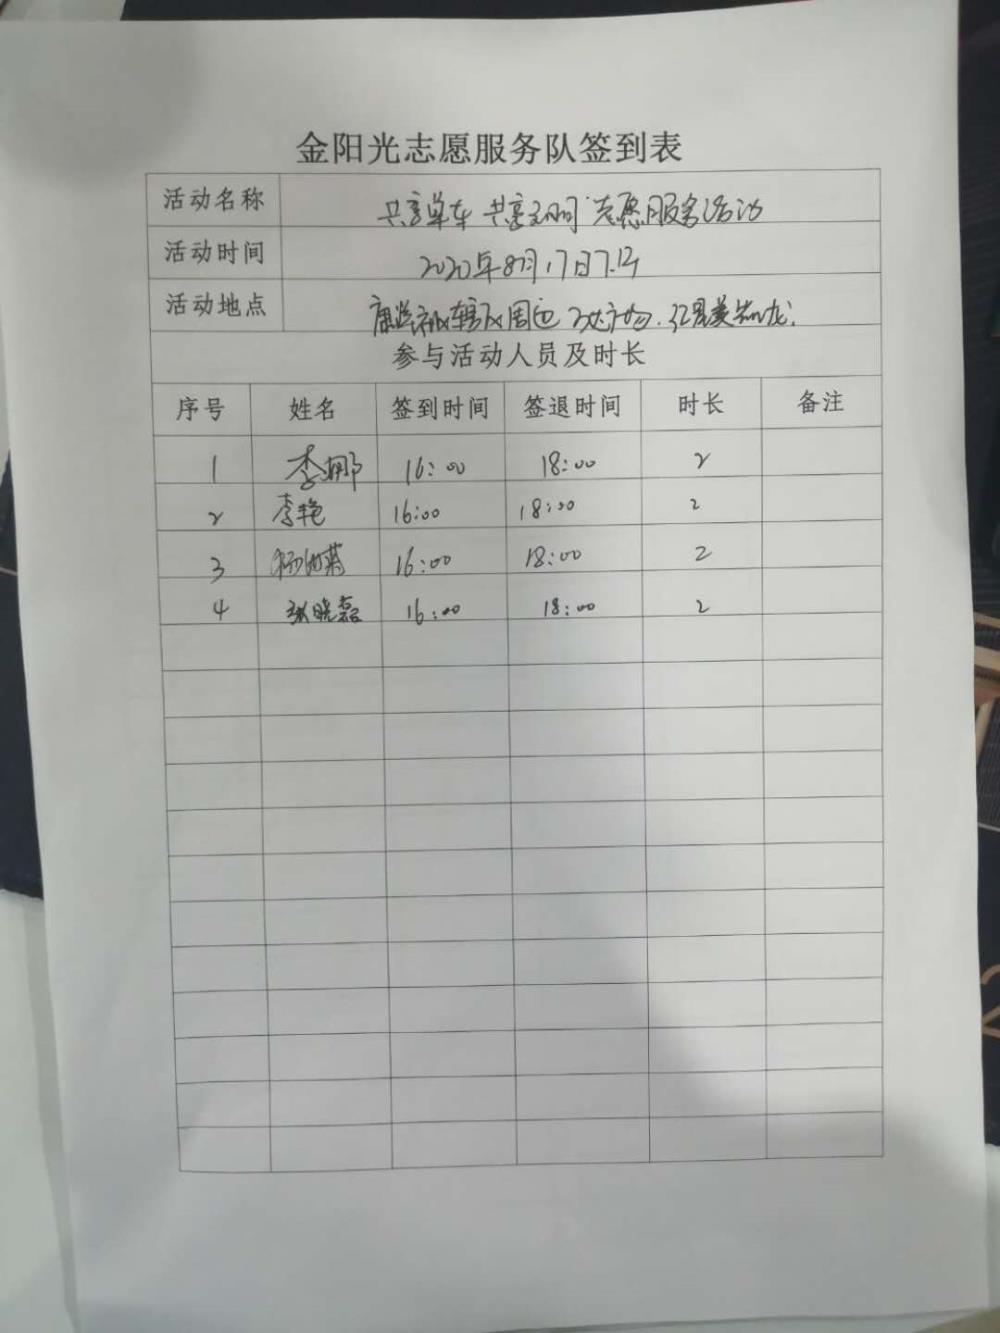 金阳光志愿服务队签到表
活动名称 共享单车 共享文明 志愿服务活动
活动时间 2020年8月17日下午
活动地点 辖区周边
参与活动人员及时长
序号 姓名 签到时间 签退时间 时长 备注
1 李娜 16:00 18:00 2
2 李艳 16:00 18:00 2
3 16:00 18:00 2
4 张晓磊 16:00 18:00 2